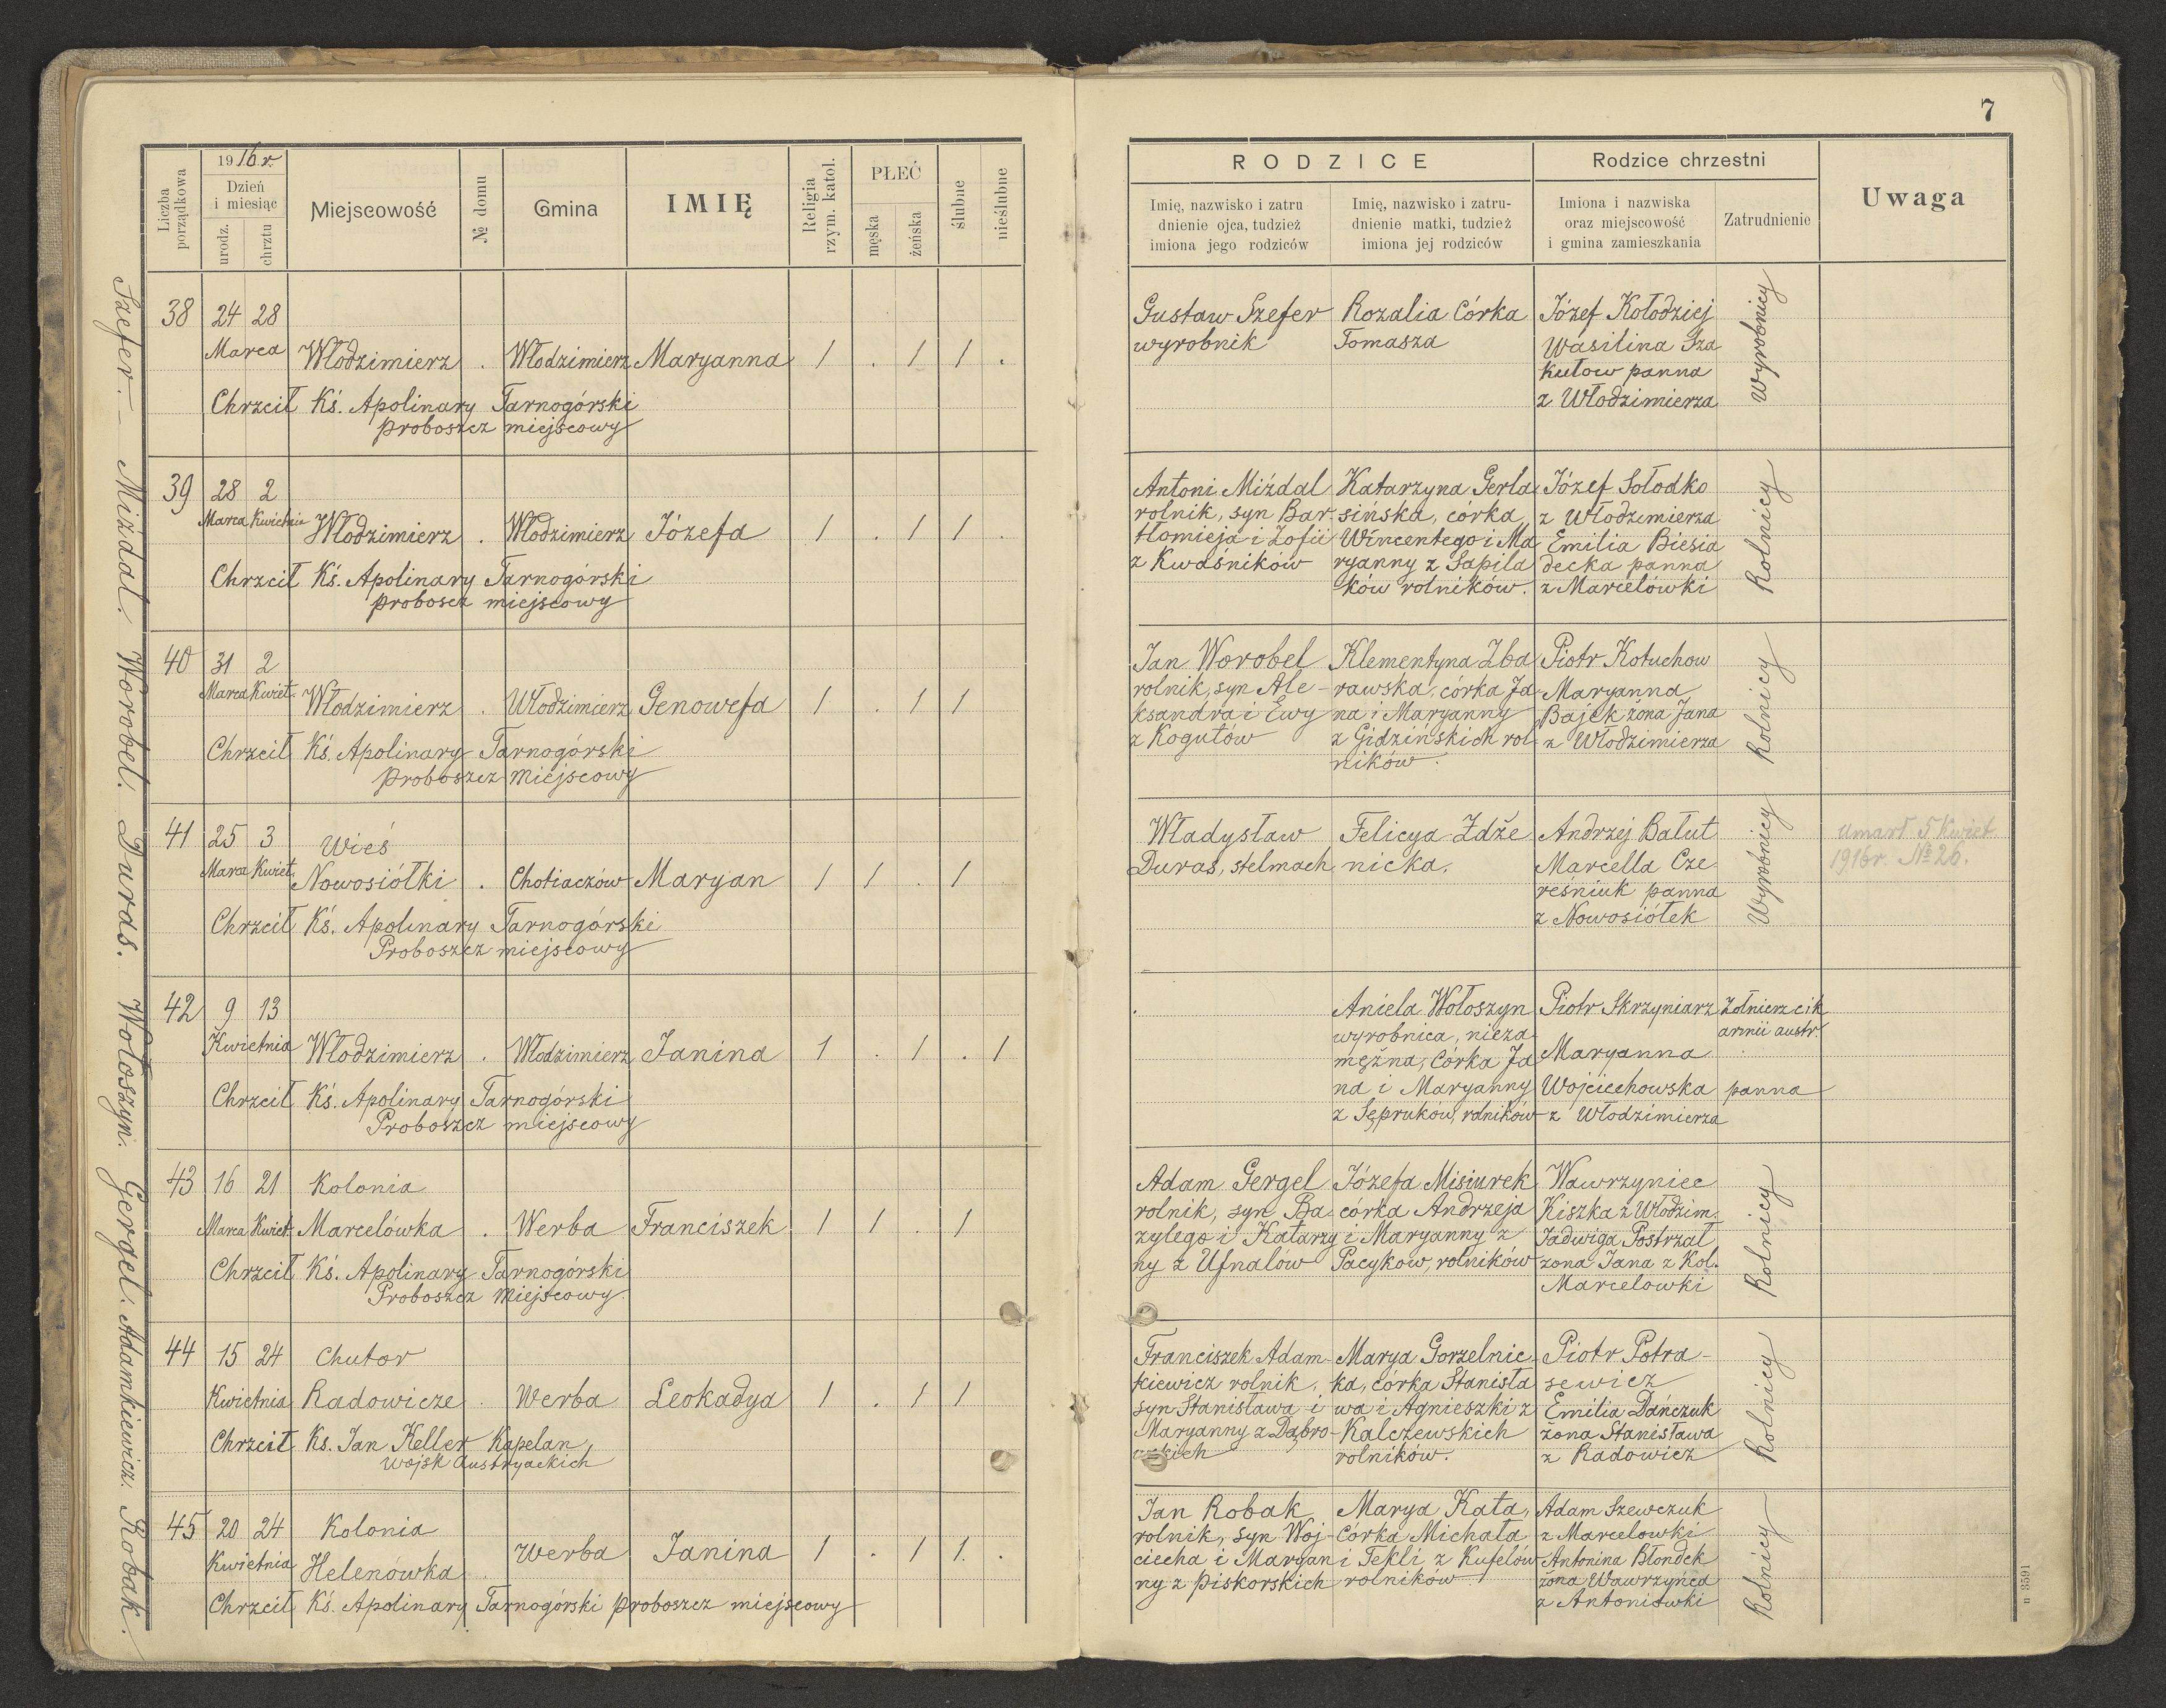 7
Liczba porządkowa
1916 r.
Dzień i miesiąc
urodz.
chrztu
Miejscowość
№ domu
Gmina
IMIĘ
Religia rzym. katol.
PŁEĆ
męska
żeńska
ślubne
nieślubne
RODZICE
Imię, nazwisko i zatru
dnienie ojca, tudzież
imiona jego rodziców
Imię, nazwisko i zatru-
dnienie matki, tudzież
imiona jej rodziców
Rodzice chrzestni
Imiona i nazwiska
oraz miejscowość
i gmina zamieszkania
Zatrudnienie
Uwaga
Szefer. — Miżdal. Worobel. Duras. Wołoszyn. Gergel. Adamkiewicz. Robak.
38 24 28
Marca Włodzimierz . Włodzimierz Maryanna 1 . 1 1 .
Chrzcił Kś. Apolinary Tarnogórski
proboszcz miejscowy
Gustaw Szefer
wyrobnik
Rozalia Córka
Tomasza
Józef Kołodziej
Wasilina Sza
kułow panna
z Włodzimierza
Wyrobnicy
39 28 2
Marca Kwietnia Włodzimierz . Włodzimierz Józefa 1 . 1 1 .
Chrzcił Kś. Apolinary Tarnogórski
proboscz miejscowy
Antoni Miżdal
rolnik, syn Bar
tłomieja i Zofii
z Kwaśników
Katarzyna Gerla
sińska, córka
Wincentego i Ma
ryanny z Sapila
ków rolników.
Józef Sołodko
z Włodzimierza
Emilia Biesia
decka panna
z Marcelówki
Rolnicy
40 31 2
Marca Kwiet. Włodzimierz . Włodzimierz Genowefa 1 . 1 1
Chrzcił Kś. Apolinary Tarnogórski
Proboszcz Miejscowy
Jan Worobel
rolnik, syn Ale-
ksandra i Ewy
z Kogutów
Klementyna Zba
rawska, córka Ja
na i Maryanny
z Gidzińskich rol-
ników.
Piotr Kotuchow
Maryanna
Bajek żona Jana
z Włodzimierza
Rolnicy
41 25 3 Wieś
Marca Kwiet. Nowosiółki . Chotiaczów Maryan 1 1 . 1
Chrzcił Kś. Apolinary Tarnogórski
Proboszcz miejscowy
Władysław
Duras, stelmach
Felicya Zdże
nicka.
Andrzej Bałut
Marcella Cze
reśniuk panna
z Nowosiółek
Wyrobnicy
umarł 5 Kwiet
1916 r. № 26.
42 9 13
Kwietnia Włodzimierz . Włodzimierz Janina 1 . 1 . 1
Chrzcił Kś. Apolinary Tarnogórski
Proboszcz miejscowy
Aniela Wołoszyn
wyrobnica, nieza
mężna, Córka Ja
na i Maryanny
z Sępruków, rolników
Piotr Skrzyniarz
Maryanna
Wojciechowska
z Włodzimierza
Żołnierz cik
armii austr.
panna
43 16 21 Kolonia
Marca Kwiet. Marcelówka . Werba Franciszek 1 1 . 1
Chrzcił Kś. Apolinary Tarnogórski
Proboszcz Miejscowy.
Adam Gergel
rolnik, syn Ba
zylego i Katarzy
ny z Ufnalów
Józefa Misiurek
córka Andrzeja
i Maryanny z
Pacyków, rolników
Wawrzyniec
Kiszka z Włodzim.
Jadwiga Postrzał
żona Jana z Kol.
Marcelowki
Rolnicy
44 15 24 Chutor
Kwietnia Radowicze . Werba Leokadya 1 . 1 1
Chrzcił Ks. Jan Keller Kapelan
wojsk austryackich
Franciszek Adam-
kiewicz rolnik,
syn Stanisława i
Maryanny z Dąbro-
wskich
Marya Gorzelnic
ka, córka Stanisła
wa i Agnieszki z
Kalczewskich
rolników.
Piotr Potra-
sewicz
Emilia Dańczuk
żona Stanisława
z Radowicz
Rolnicy
45 20 24 Kolonia
Kwietnia Helenówka . Werba Janina 1 . 1 1. .
Chrzcił Kś. Apolinary Tarnogórski proboszcz miejscowy
Jan Robak
rolnik, syn Woj-
ciecha i Maryan
ny z Piskorskich
Marya Kata,
Córka Michała
i Tekli z Kufelów
rolników
Adam Szewczuk
z Marcelowki
Antonina Błondek
żona Wawrzyńca
z Antoniówki
Rolnicy
n 3591